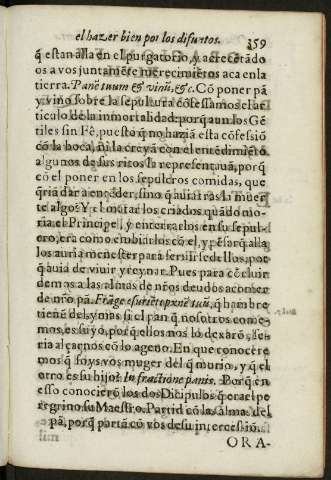 el hazer bien por los difuntos. 359
q̃ estan allà en el purgatorio, y acrecetãdo
os a vos juntamẽte merecimiẽtos aca en la
tierra. Panẽ tuum & vinũ, &c. Cõ poner pã
y vino sobre la sepultura cõfessamos el ar
ticulo de la inmortalidad: porq̃ aun los Gẽ
tiles sin Fè, puesto q̃ no haziã esta cõfessiõ
cõ la boca, ni la creyã con el entẽdimiẽto,
algunos de sus ritos la representauã, porq̃
cõ el poner en los sepulcros comidas, que
q̃riã dar a entẽder, sino q̃ auia tras la muer
te algo? Y el matar los criados quãdo mo-
ria el Principe, y enterrarlos en su sepul-
cro, era como embiarlos cõ el, y pẽsar q̃ allà
los auria menester para seruirse dellos, por
q̃ auia de viuir y reynar. Pues para cõcluir
demos a las almas de nr̃os deudos a comer
de nr̃o pã. Frãge esuriẽti panẽ tuũ, q̃ hambre
tienẽ del, y mas si el pan q̃ nosotros come-
mos, es suyo, porq̃ ellos nos lo dexarõ,
ria al cabo cõ lo ageno. En que conocere
mos q̃ soys vos muger del q̃ murio, y q̃ el
otro es su hijo? In fractione panis. Porq̃ en
esso conocierõ los dos Dicipulos q̃ era el pe
regrino su Maestro. Partid cõ las almas del
pã, porq̃ partã cõ vos de su intercessiõ.
ORA-